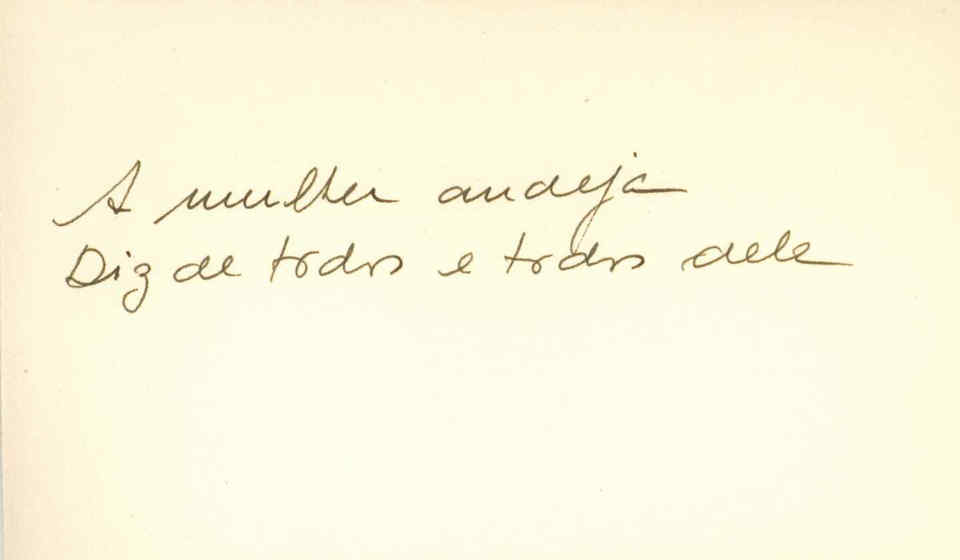 A mulher andeja
Diz de todos e todos dele